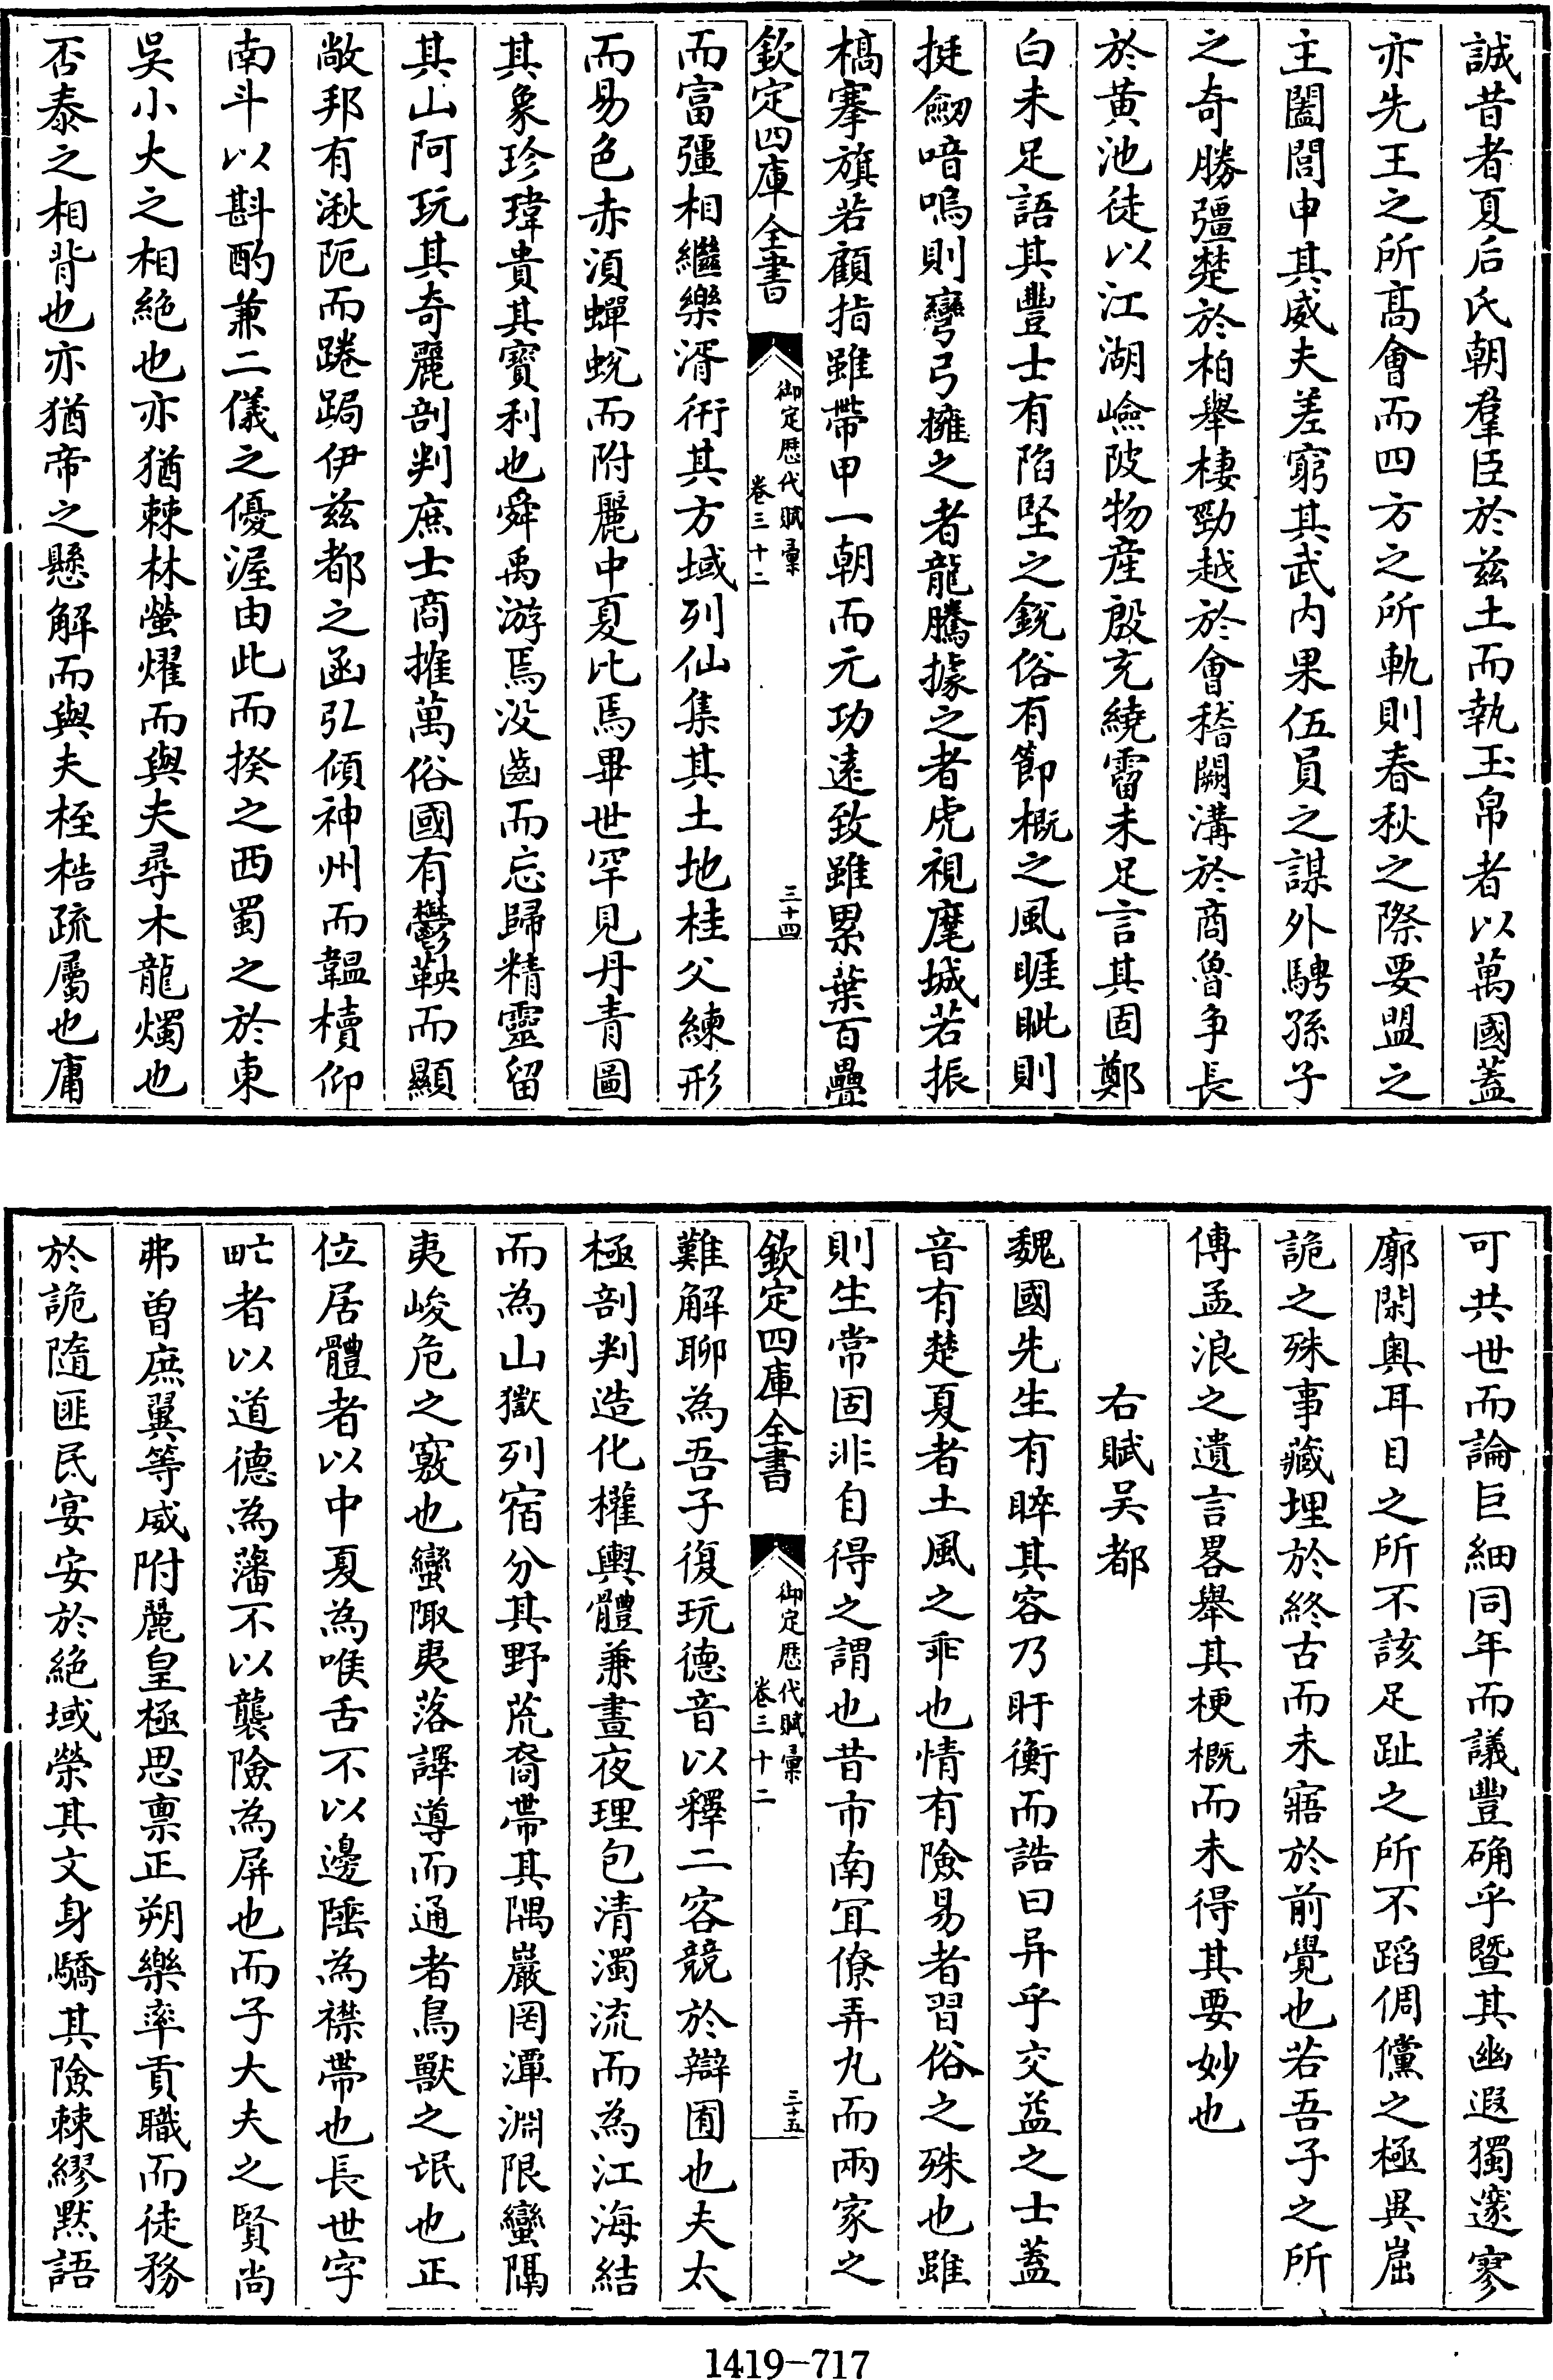 誠昔者夏后氏朝羣臣於茲土而執玉帛者以萬國蓋
亦先王之所髙會而四方之所軌則春秋之際要盟之
主闔閭申其威夫差窮其武内果伍員之謀外騁孫子
之奇勝彊楚於柏舉棲勁越於會稽闕溝於商魯争長
於黄池徒以江湖嶮陂物産殷充繞霤未足言其固鄭
白未足語其豐士有陷堅之銳俗有節概之風睚眦則
挺劒喑嗚則彎弓擁之者龍騰據之者虎視麾城若振
槁搴旗若顧指雖帶甲一朝而元功遠致雖累葉百疊
欽定四庫全書
御定歴代賦彙
卷三十二
三十四
而富彊相繼樂湑衎其方域列仙集其土地桂父練形
而易色赤湏蟬蛻而附麗中夏比焉畢世罕見丹青圖
其象珍瑋貴其寳利也舜禹游焉没齒而忘歸精靈留
其山阿玩其奇麗剖判庶士商搉萬俗國有鬱鞅而顯
敞邦有湫阨而踡跼伊茲都之函弘傾神州而韞櫝仰
南斗以斟酌兼二儀之優渥由此而揆之西蜀之於東
吳小大之相絶也亦猶棘林螢燿而與夫尋木龍燭也
否泰之相背也亦猶帝之懸解而與夫桎梏疏屬也庸
可共世而論巨細同年而議豐确乎暨其幽遐獨邃寥
廓閑奥耳目之所不該足趾之所不蹈倜儻之極異崫
詭之殊事藏埋於終古而未寤於前覺也若吾子之所
傳孟浪之遺言畧舉其梗概而未得其要妙也
右賦吳都
魏國先生有睟其容乃盱衡而誥曰异乎交益之士蓋
音有楚夏者土風之乖也情有險易者習俗之殊也雖
則生常固非自得之謂也昔市南宜僚弄丸而兩家之
欽定四庫全書
御定歴代賦彙
卷三十二
三十五
難解聊為吾子復玩德音以釋二客競於辯囿也夫太
極剖判造化權輿體兼晝夜理包清濁流而為江海結
而為山嶽列宿分其野荒裔帶其隅巖罔潭淵限蠻隔
夷峻危之竅也蠻陬夷落譯導而通者鳥獸之氓也正
位居體者以中夏為喉舌不以邊陲為襟帶也長世字
甿者以道德為藩不以襲險為屏也而子大夫之賢尚
弗曾庶翼等威附麗皇極思禀正朔樂率貢職而徒務
於詭隨匪民宴安於絶域榮其文身驕其險棘繆黙語
1419-717